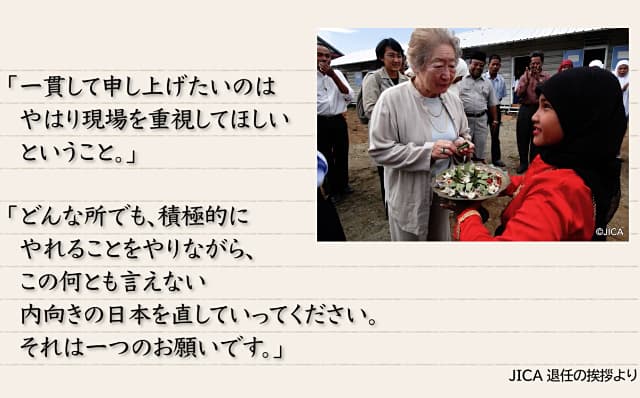 「一貫して申し上げたいのは
やはり現場を重視してほしい
ということ。」
「どんな所でも、積極的に
やれることをやりながら、
この何とも言えない
内向きの日本を直していってください。
それは一つのお願いです。」
©JICA
JICA 退任の挨拶より